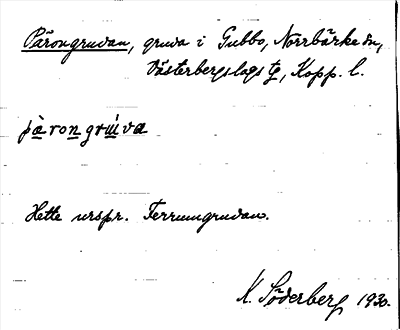 Pärongruvan, gruva i Gubbo, Norrbärke sn,
Västerbergslags tg, Kopp. l.
pä̀rongrúva
Hette urspr. Ferrumgruvan.
K. Söderberg 1930.